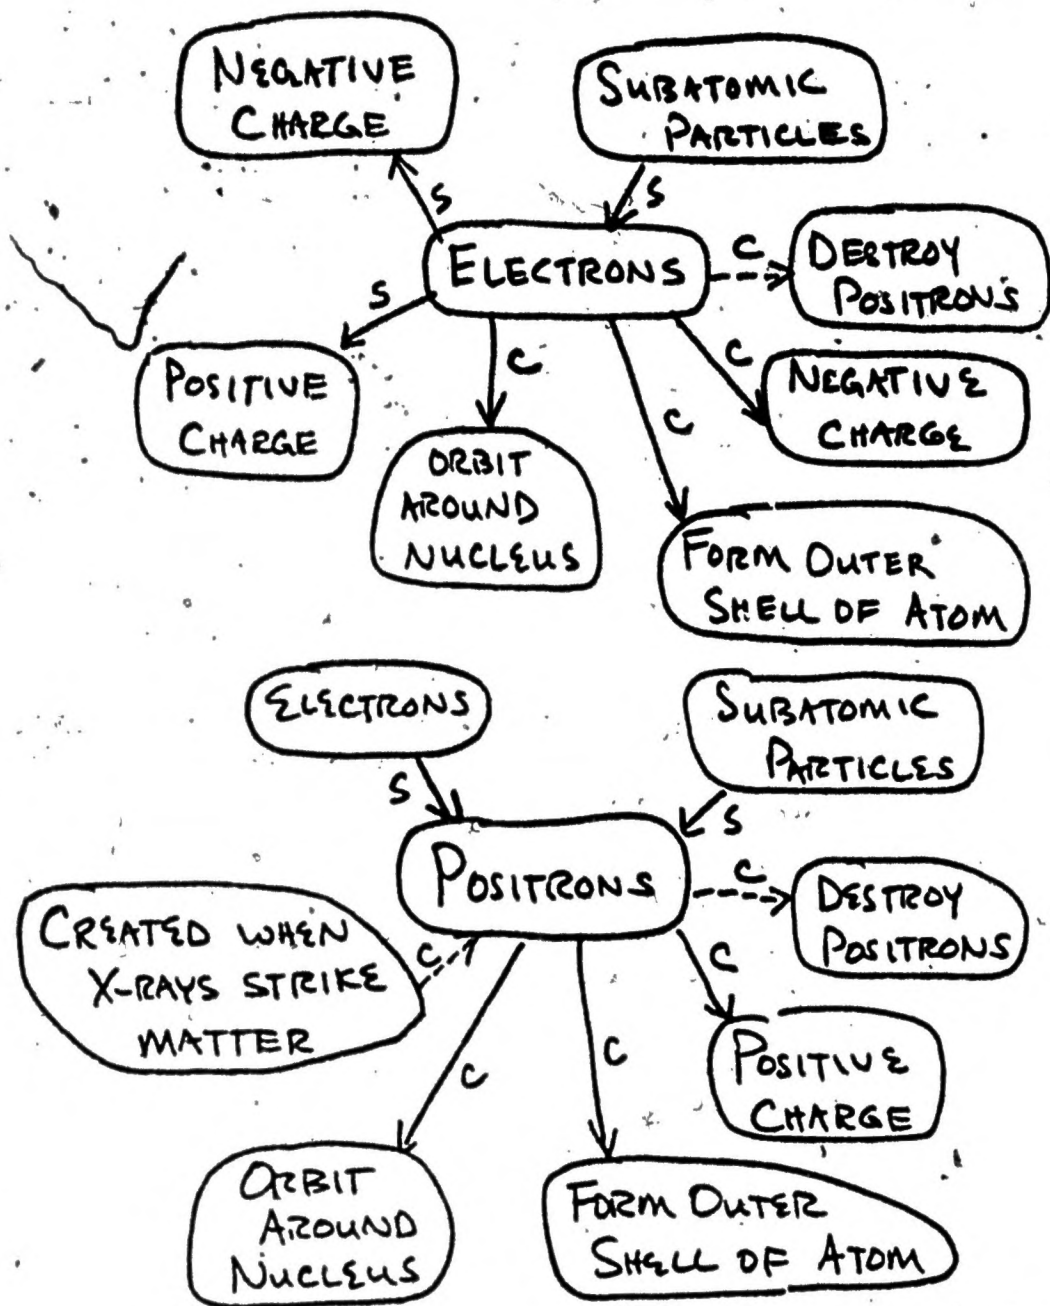 NEGATIVE
CHARGE
SUBATOMIC
PARTICLES
S
S
ELECTRONS
C
DESTROY
POSITRONS
S
C
C
C
POSITIVE
CHARGE
NEGATIVE
CHARGE
ORBIT
AROUND
NUCLEUS
FORM OUTER
SHELL OF ATOM
ELECTRONS
SUBATOMIC
PARTICLES
S
S
POSITRONS
C
DESTROY
POSITRONS
CREATED WHEN
X-RAYS STRIKE
MATTER
C
C
C
C
POSITIVE
CHARGE
ORBIT
AROUND
NUCLEUS
FORM OUTER
SHELL OF ATOM